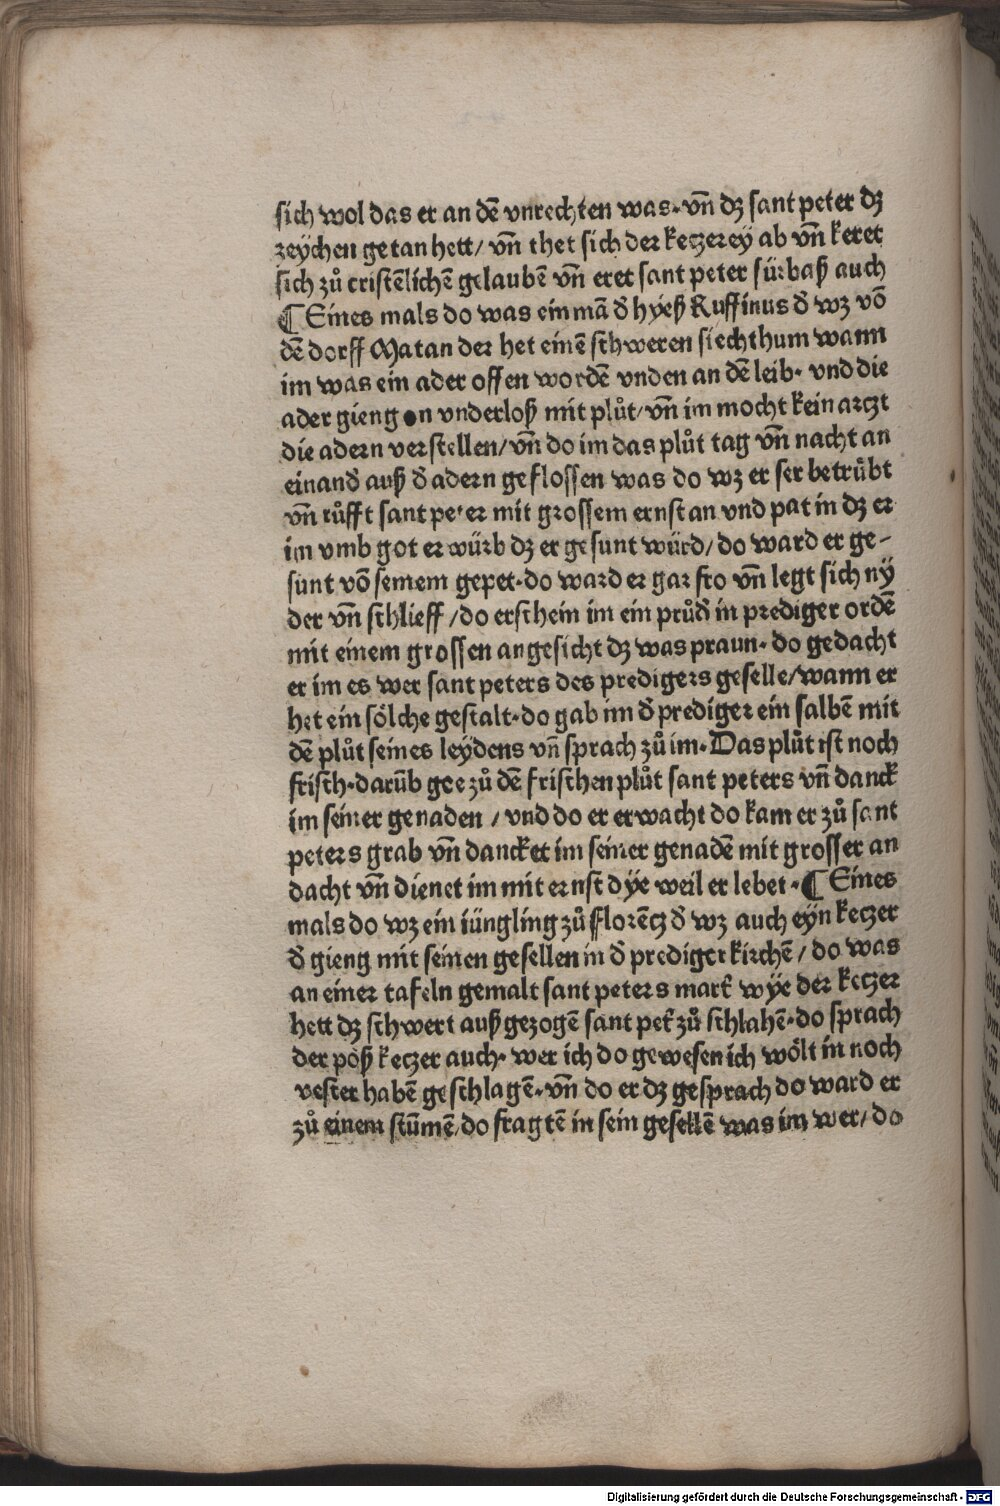 sich wol das er an dē vnrechten was. vn̄ dʒ sant peter dʒ
zeychen getan hett/ vn̄ thet sich der ketzerey ab vn̄ keret
sich zů cristēlichē gelaubē vn̄ eret sant peter fürbaß auch
¶ Eines mals do was ein mā d̄ hyeß Ruffinus d̄ wʒ vō
dē dorff Matan der het einē schweren siechthum wann
im was ein ader offen wordē vnden an dē leib. vnd die
ader gieng on vnderloß mit plůt/ vn̄ im mocht kein artzt
die adern verstellen/ vn̄ do im das plůt tag vn̄ nacht an
einand̄ auß d̄ adern geflossen was do wʒ er ser betrůbt
vn̄ růfft sant peter mit grossem ernst an vnd pat in dʒ er
im vmb got erwürb dʒ er gesunt würd/ do ward er ge-
sunt vō seinem gepet. do ward er gar fro vn̄ legt sich ny
der vn̄ schlieff/ do erschein im ein průd̄ in prediger ordē
mit einem grossen angesicht dʒ was praun. do gedacht
er im es wer sant peters des predigers geselle/ wann er
het ein sölche gestalt. do gab im d̄ prediger ein salbē mit
dē plůt seines leydens vn̄ sprach zů im. Das plůt ist noch
frisch. darūb gee zů dē frischen plůt sant peters vn̄ danck
im seiner genaden/ vnd do er erwacht do kam er zů sant
peters grab vn̄ dancket im seiner genadē mit grosser an
dacht vn̄ dienet im mit ernst dye weil er lebet. ¶ Eines
mals do wʒ ein iüngling zů Florētz d̄ wʒ auch eyn ketzer
d̄ gieng mit seinen gesellen in d̄ prediger kirchē/ do was
an einer tafeln gemalt sant peters mart̄ wye der ketzer
hett dʒ schwert auß gezogē sant pet̄ zů schlahē. do sprach
der pöß ketzer auch. wer ich do gewesen ich wölt in noch
vester habē geschlagē. vn̄ do er dʒ gesprach do ward er
zů einem stūmē/ do fragtē in sein gesellē was im wer/ do
Digitalisierung gefördert durch die Deutsche Forschungsgemeinschaft - DFG